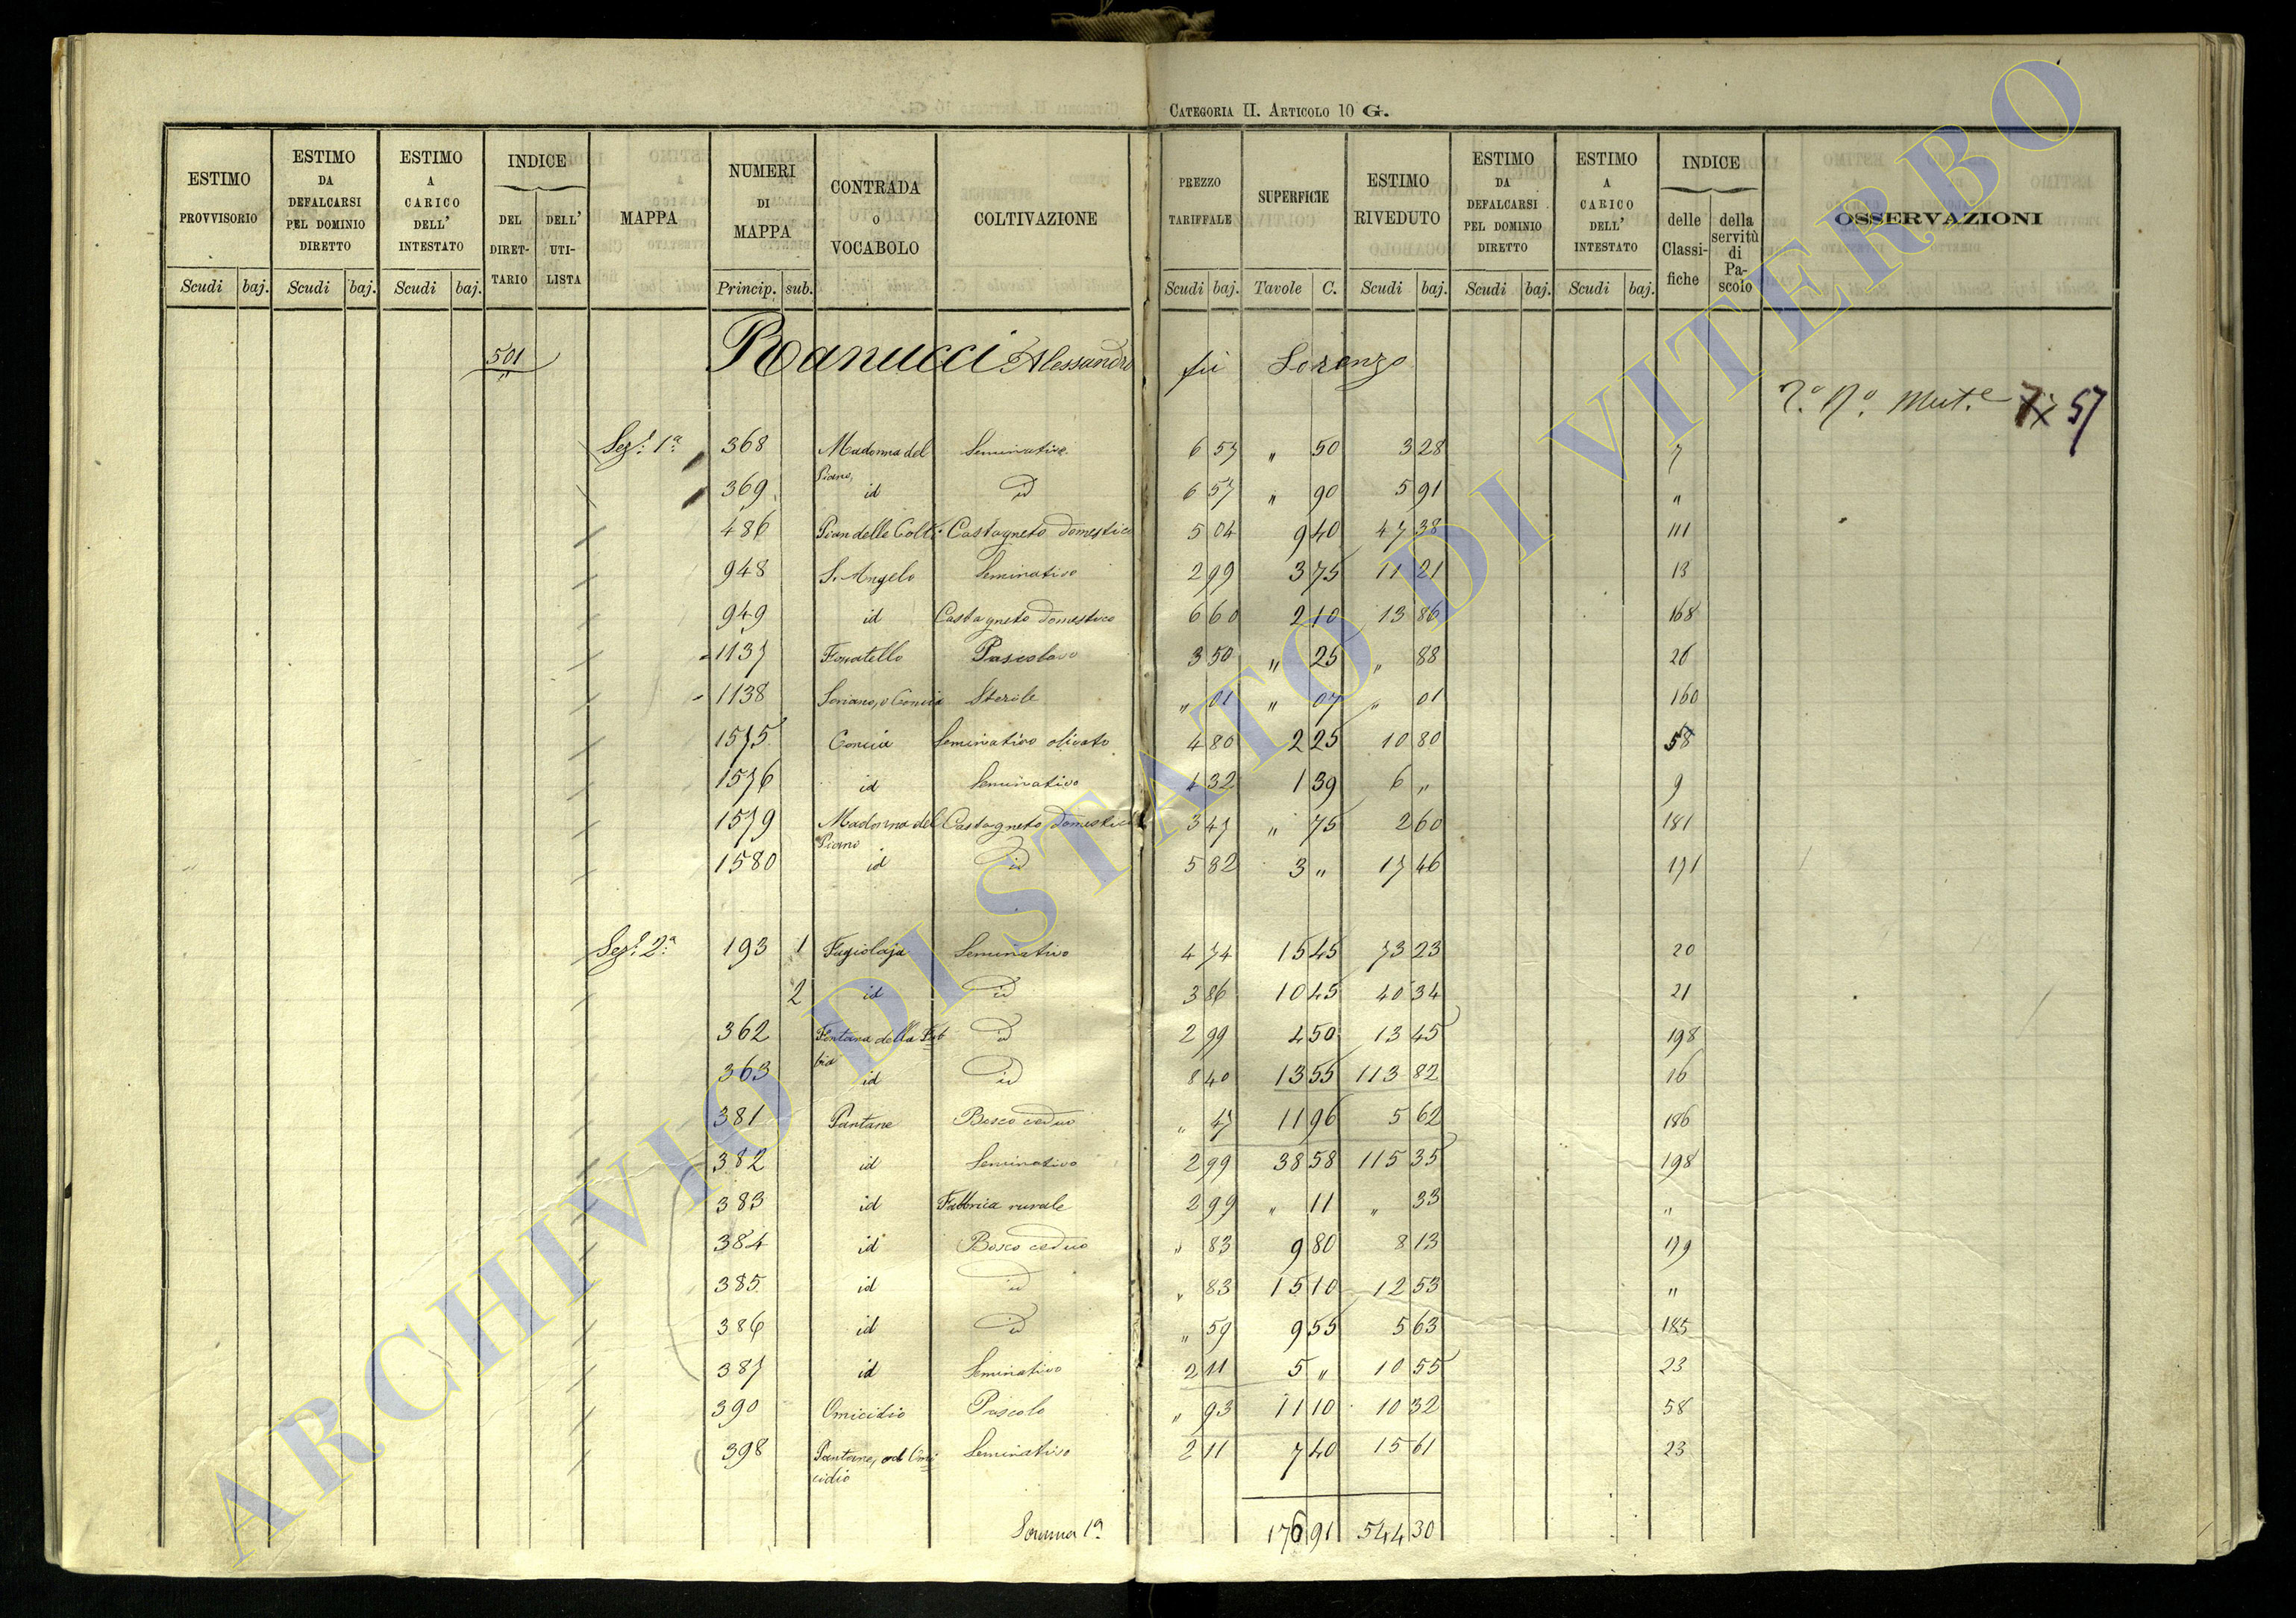 CATEGORIA II. ARTICOLO 10 G.
ESTIMO PROVVISORIO Scudi baj. ESTIMO DA DEFALCARSI PEL DOMINIO DIRETTO Scudi baj. ESTIMO A CARICO DELL' INTESTATO Scudi baj. INDICE DEL DIRETTARIO DELL' UTILISTA MAPPA NUMERI DI MAPPA Princip. sub. CONTRADA O VOCABOLO COLTIVAZIONE PREZZO TARIFFALE Scudi baj. SUPERFICIE Tavole C. ESTIMO RIVEDUTO Scudi baj. ESTIMO DA DEFALCARSI PEL DOMINIO DIRETTO Scudi baj. ESTIMO A CARICO DELL' INTESTATO Scudi baj. INDICE delle Classifiche della servitù di Pascolo OSSERVAZIONI
501 Ranucci Alessandro fù Lorenzo
Mut.e 57
Sez. 1a 368 Madonna del Piano, Seminativo 6 57 " 50 3 28 7
369 id id 6 57 " 90 5 91 "
486 Pian delle Colt. Castagneto domestico 5 04 9 40 47 38 111
948 S. Angelo Seminativo 2 99 3 75 11 21 13
949 id Castagneto domestico 6 60 2 10 13 86 168
1137 Fossatello Pascolivo 3 50 " 25 " 88 26
1138 Soriano, o Concia Sterile " 01 " 07 " 01 160
1575 Concia Seminativo olivato 4 80 2 25 10 80 58
1576 id Seminativo 4 32 1 39 6 " 9
1579 Madonna del Piano Castagneto domestico 3 47 " 75 2 60 181
1580 id id 5 82 3 " 17 46 171
Sez. 2a 193 1 Fagiolaja Seminativo 4 74 15 45 73 23 20
2 id id 3 86 10 45 40 34 21
362 Fontana della id 2 99 4 50 13 45 198
363 id id 8 40 13 55 113 82 16
381 Pantane Bosco ceduo " 47 11 96 5 62 186
382 id Seminativo 2 99 38 58 115 35 198
383 id Fabbrica rurale 2 99 " 11 " 33 "
384 id Bosco ceduo " 83 9 80 8 13 179
385 id id " 83 15 10 12 53 "
386 id id " 59 9 55 5 63 185
387 id Seminativo 2 11 5 " 10 55 23
390 Omicidio Pascolo " 93 11 10 10 32 58
398 Pantane, od Omicidio Seminativo 2 11 7 40 15 61 23
Somma 1a 176 91 544 30
ARCHIVIO DI STATO DI VITERBO